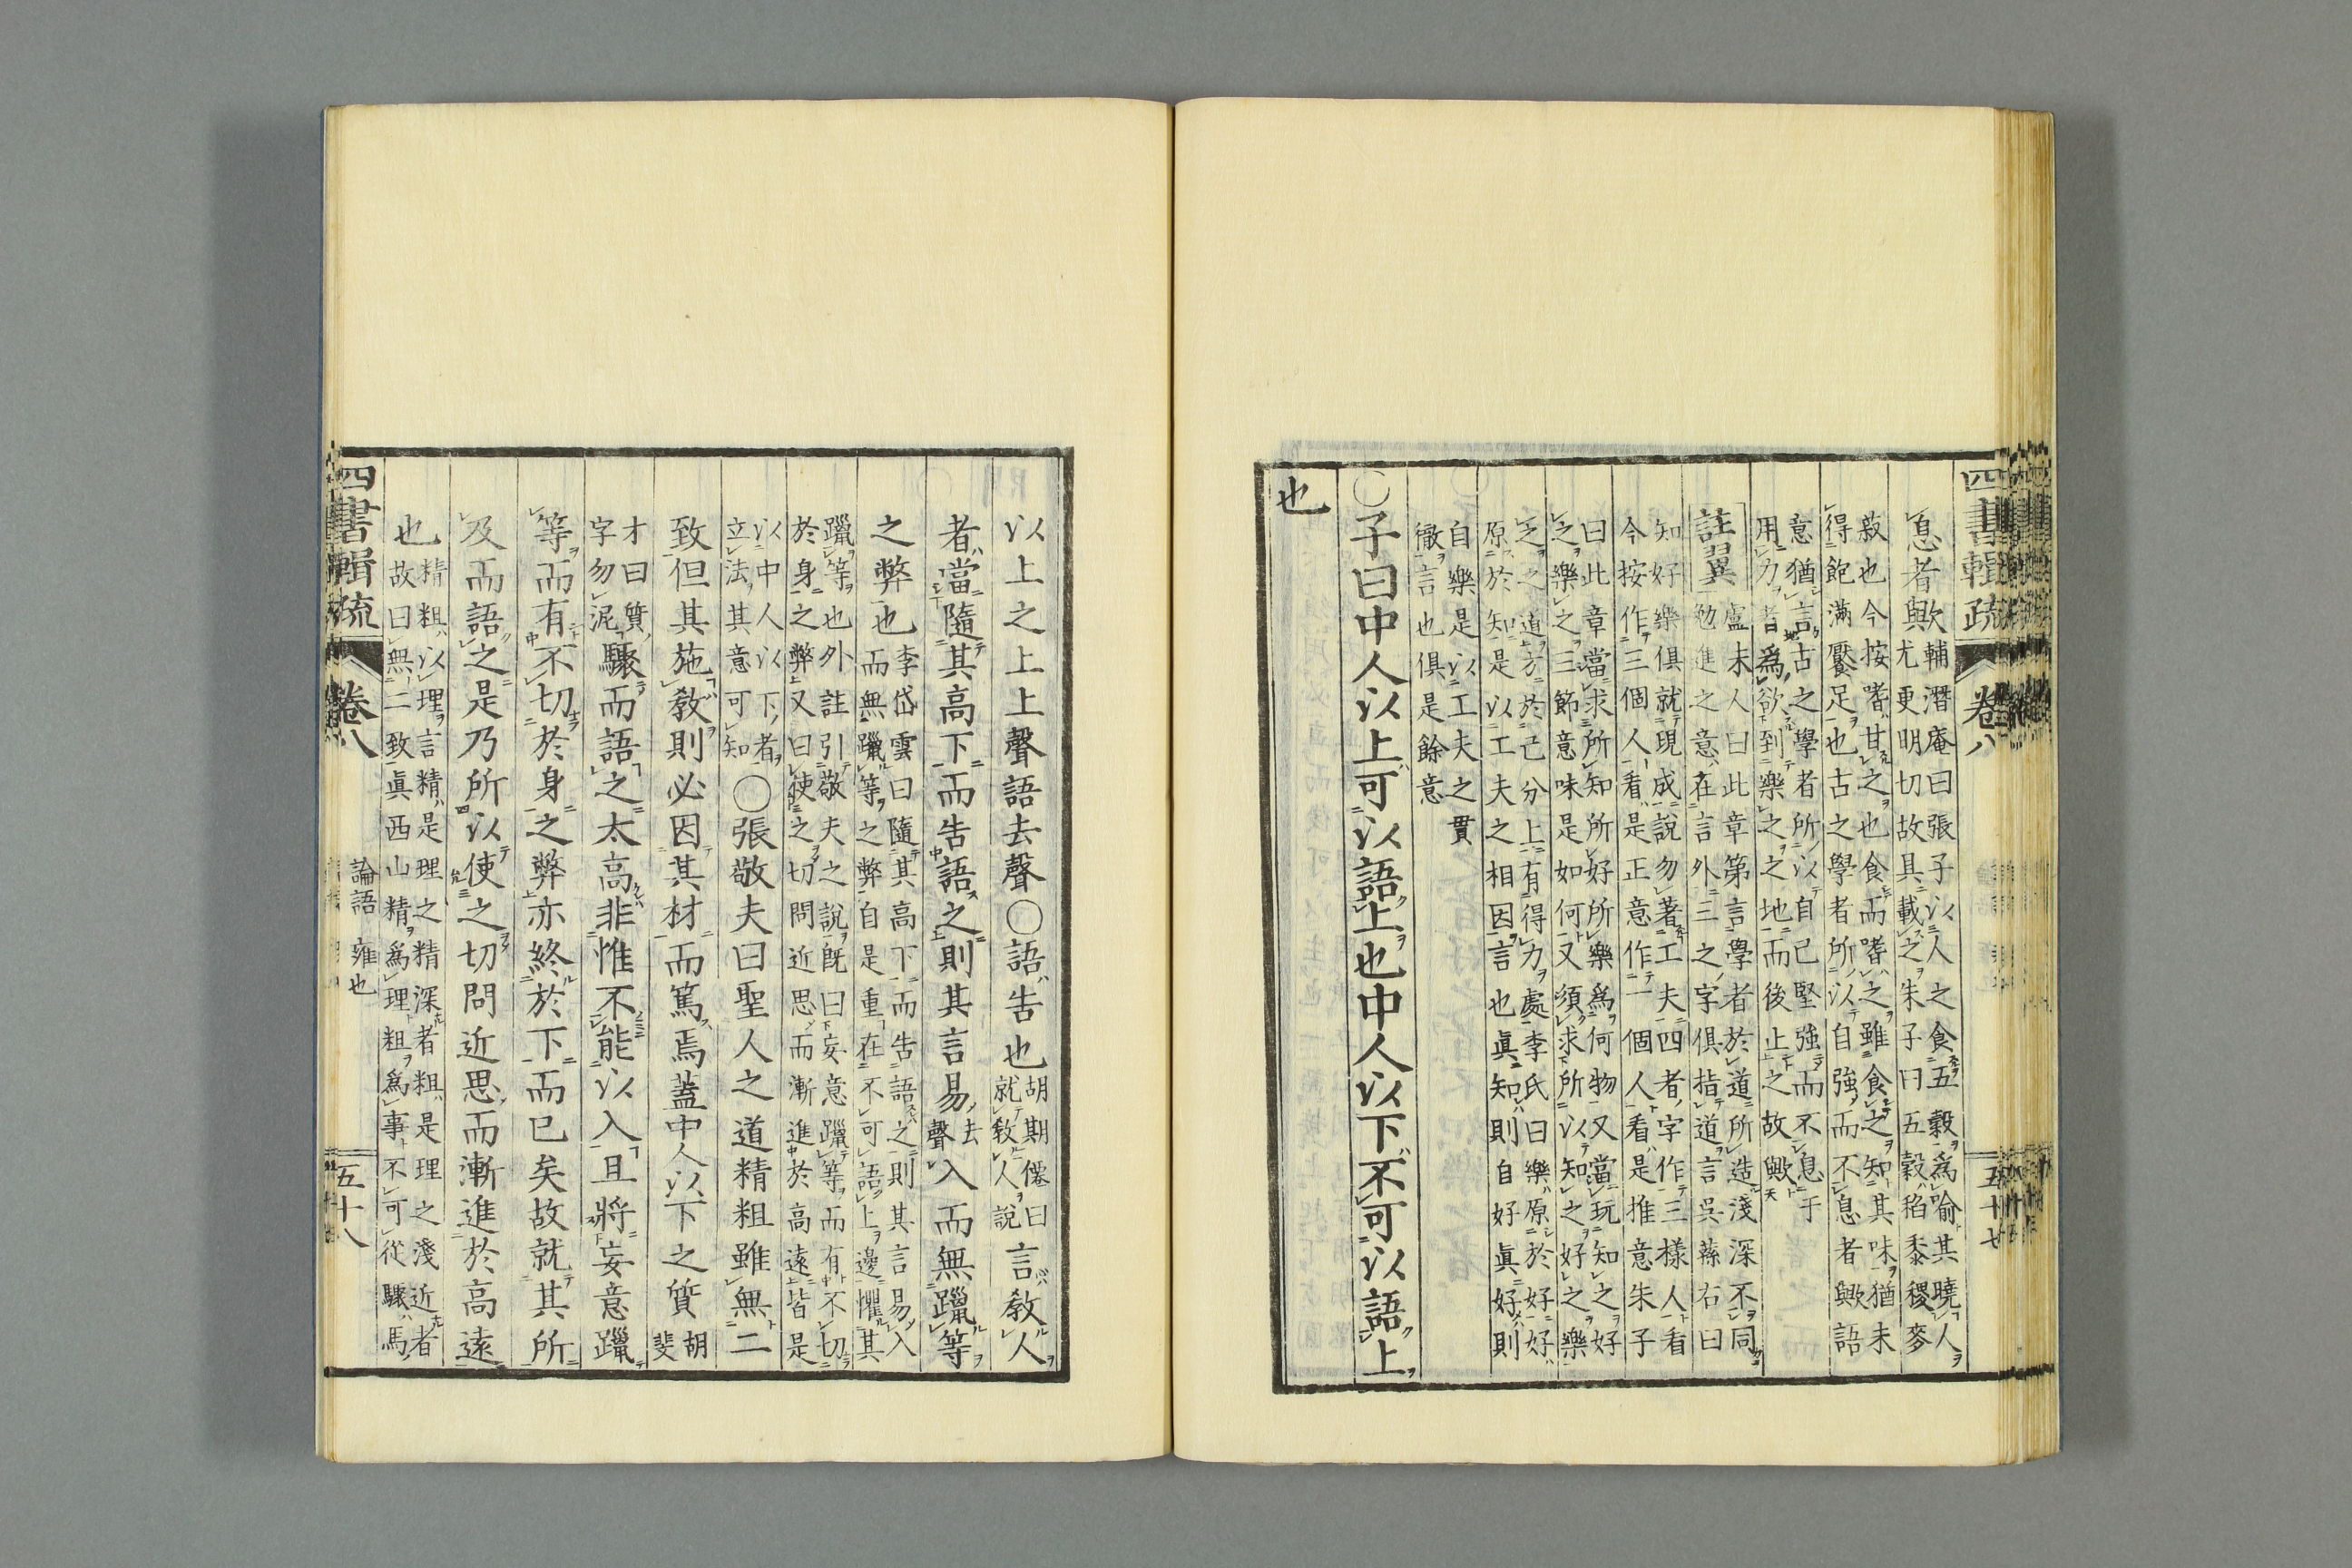 四書輯疏 卷八 五十七
息者歟 輔潛庵曰張子以人之食五穀爲喻其曉人
尤更明切故具載之朱子曰五穀稻黍稷麥
菽也今按嗜甘之也食而嗜之雖食之知其味猶未
得飽滿饜足也古之學者所以自強而不息者歟語
意猶言古之學者所以自己堅強而不息于
用力者爲欲到樂之之地而後止之故歟
註翼 盧未人曰此章第言學者於道所造淺深不同
勉進之意在言外三之字俱指道言吳蓀右曰
知好樂俱就現成說勿著工夫四者字作三樣人看
今按作三個人看是正意作一個人看是推意朱子
曰此章當求所知所好所樂爲何物又當玩知之好
之樂之三節意味是如何又須求所以知之好之樂
之之道方於己分上有得力處李氏曰樂原於好好
原於知是以工夫之相因言也眞知則自好眞好則
自樂是以工夫之貫
徹言也俱是餘意
○子曰中人以上可以語上也中人以下不可以語上
也
以上之上上聲語去聲○語告也 胡期僊曰
就敎人說 言敎人
者當隨其高下而告語之則其言易 去
聲 入而無躐等
之弊也 李岱雲曰隨其高下而告語之則其言易入
而無躐等之弊自是重在不可語上邊懼其
躐等也外註引敬夫之說旣曰妄意躐等而有不切
於身之弊又曰使之切問近思而漸進於高遠皆是
以中人以下者
立法其意可知 ○張敬夫曰聖人之道精粗雖無二
致但其施敎則必因其材而篤焉蓋中人以下之質 胡
斐
才曰質
字勿泥 驟而語之太高非惟不能以入且將妄意躐
等而有不切於身之弊亦終於下而已矣故就其所
及而語之是乃所以使之切問近思而漸進於高遠
也 精粗以理言精是理之精深者粗是理之淺近者
故曰無二致眞西山精爲理粗爲事不可從驟馬
四書輯疏 卷八 論語 雍也 五十八